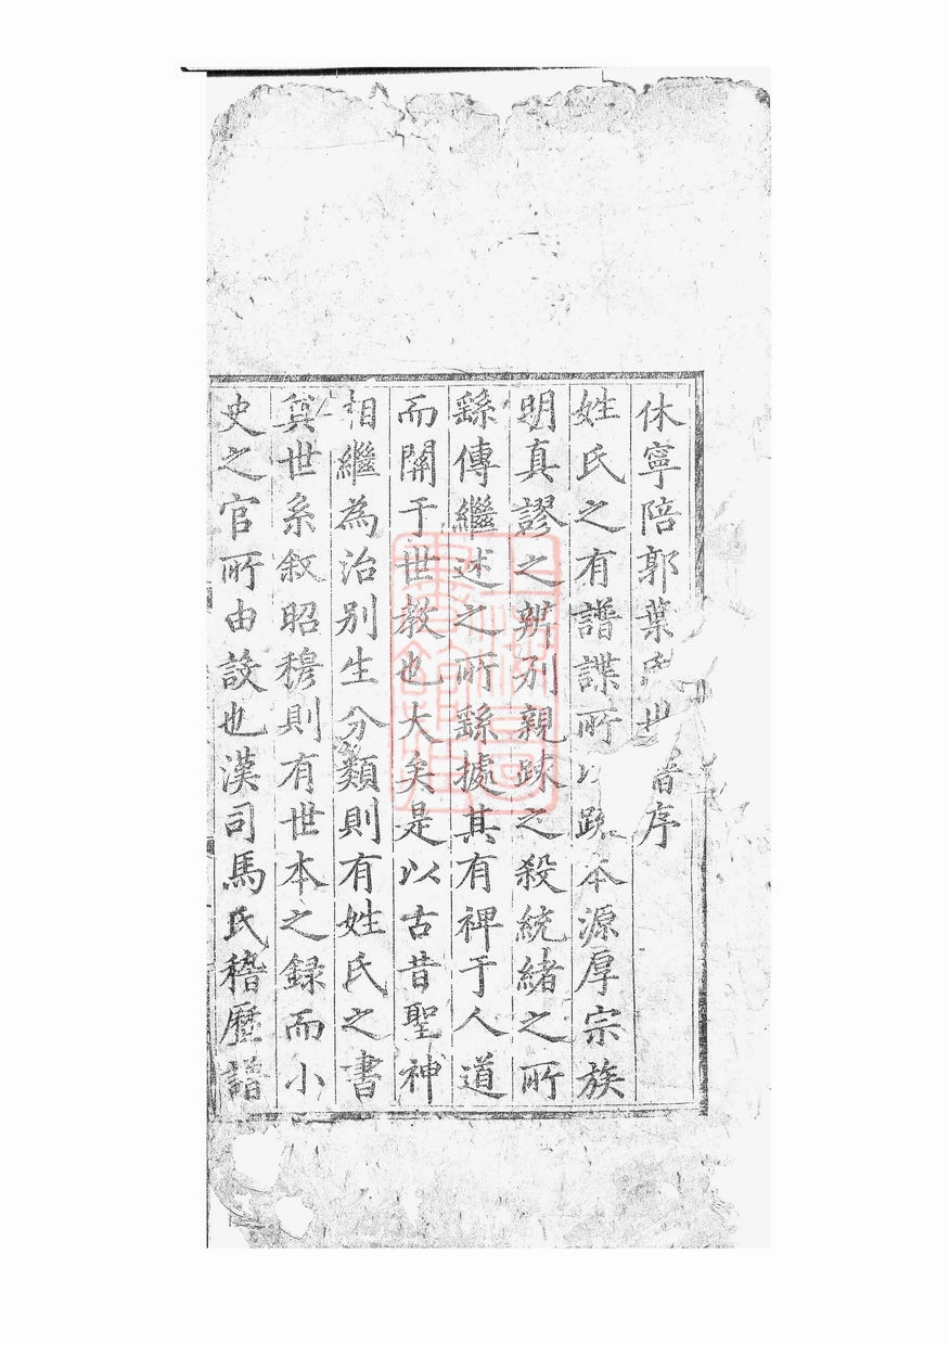 休寧陪郭葉氏世譜序
姓氏之有譜諜所以跡本源厚宗族
明真謬之辨別親踈之殺統緒之所
繇傳繼述之所繇據其有裨于人道
而關于世教也大矣是以古昔聖神
相繼為治別生分類則有姓氏之書
奠世系敘昭穆則有世本之録而小
史之官所由設也漢司馬氏稽歷譜